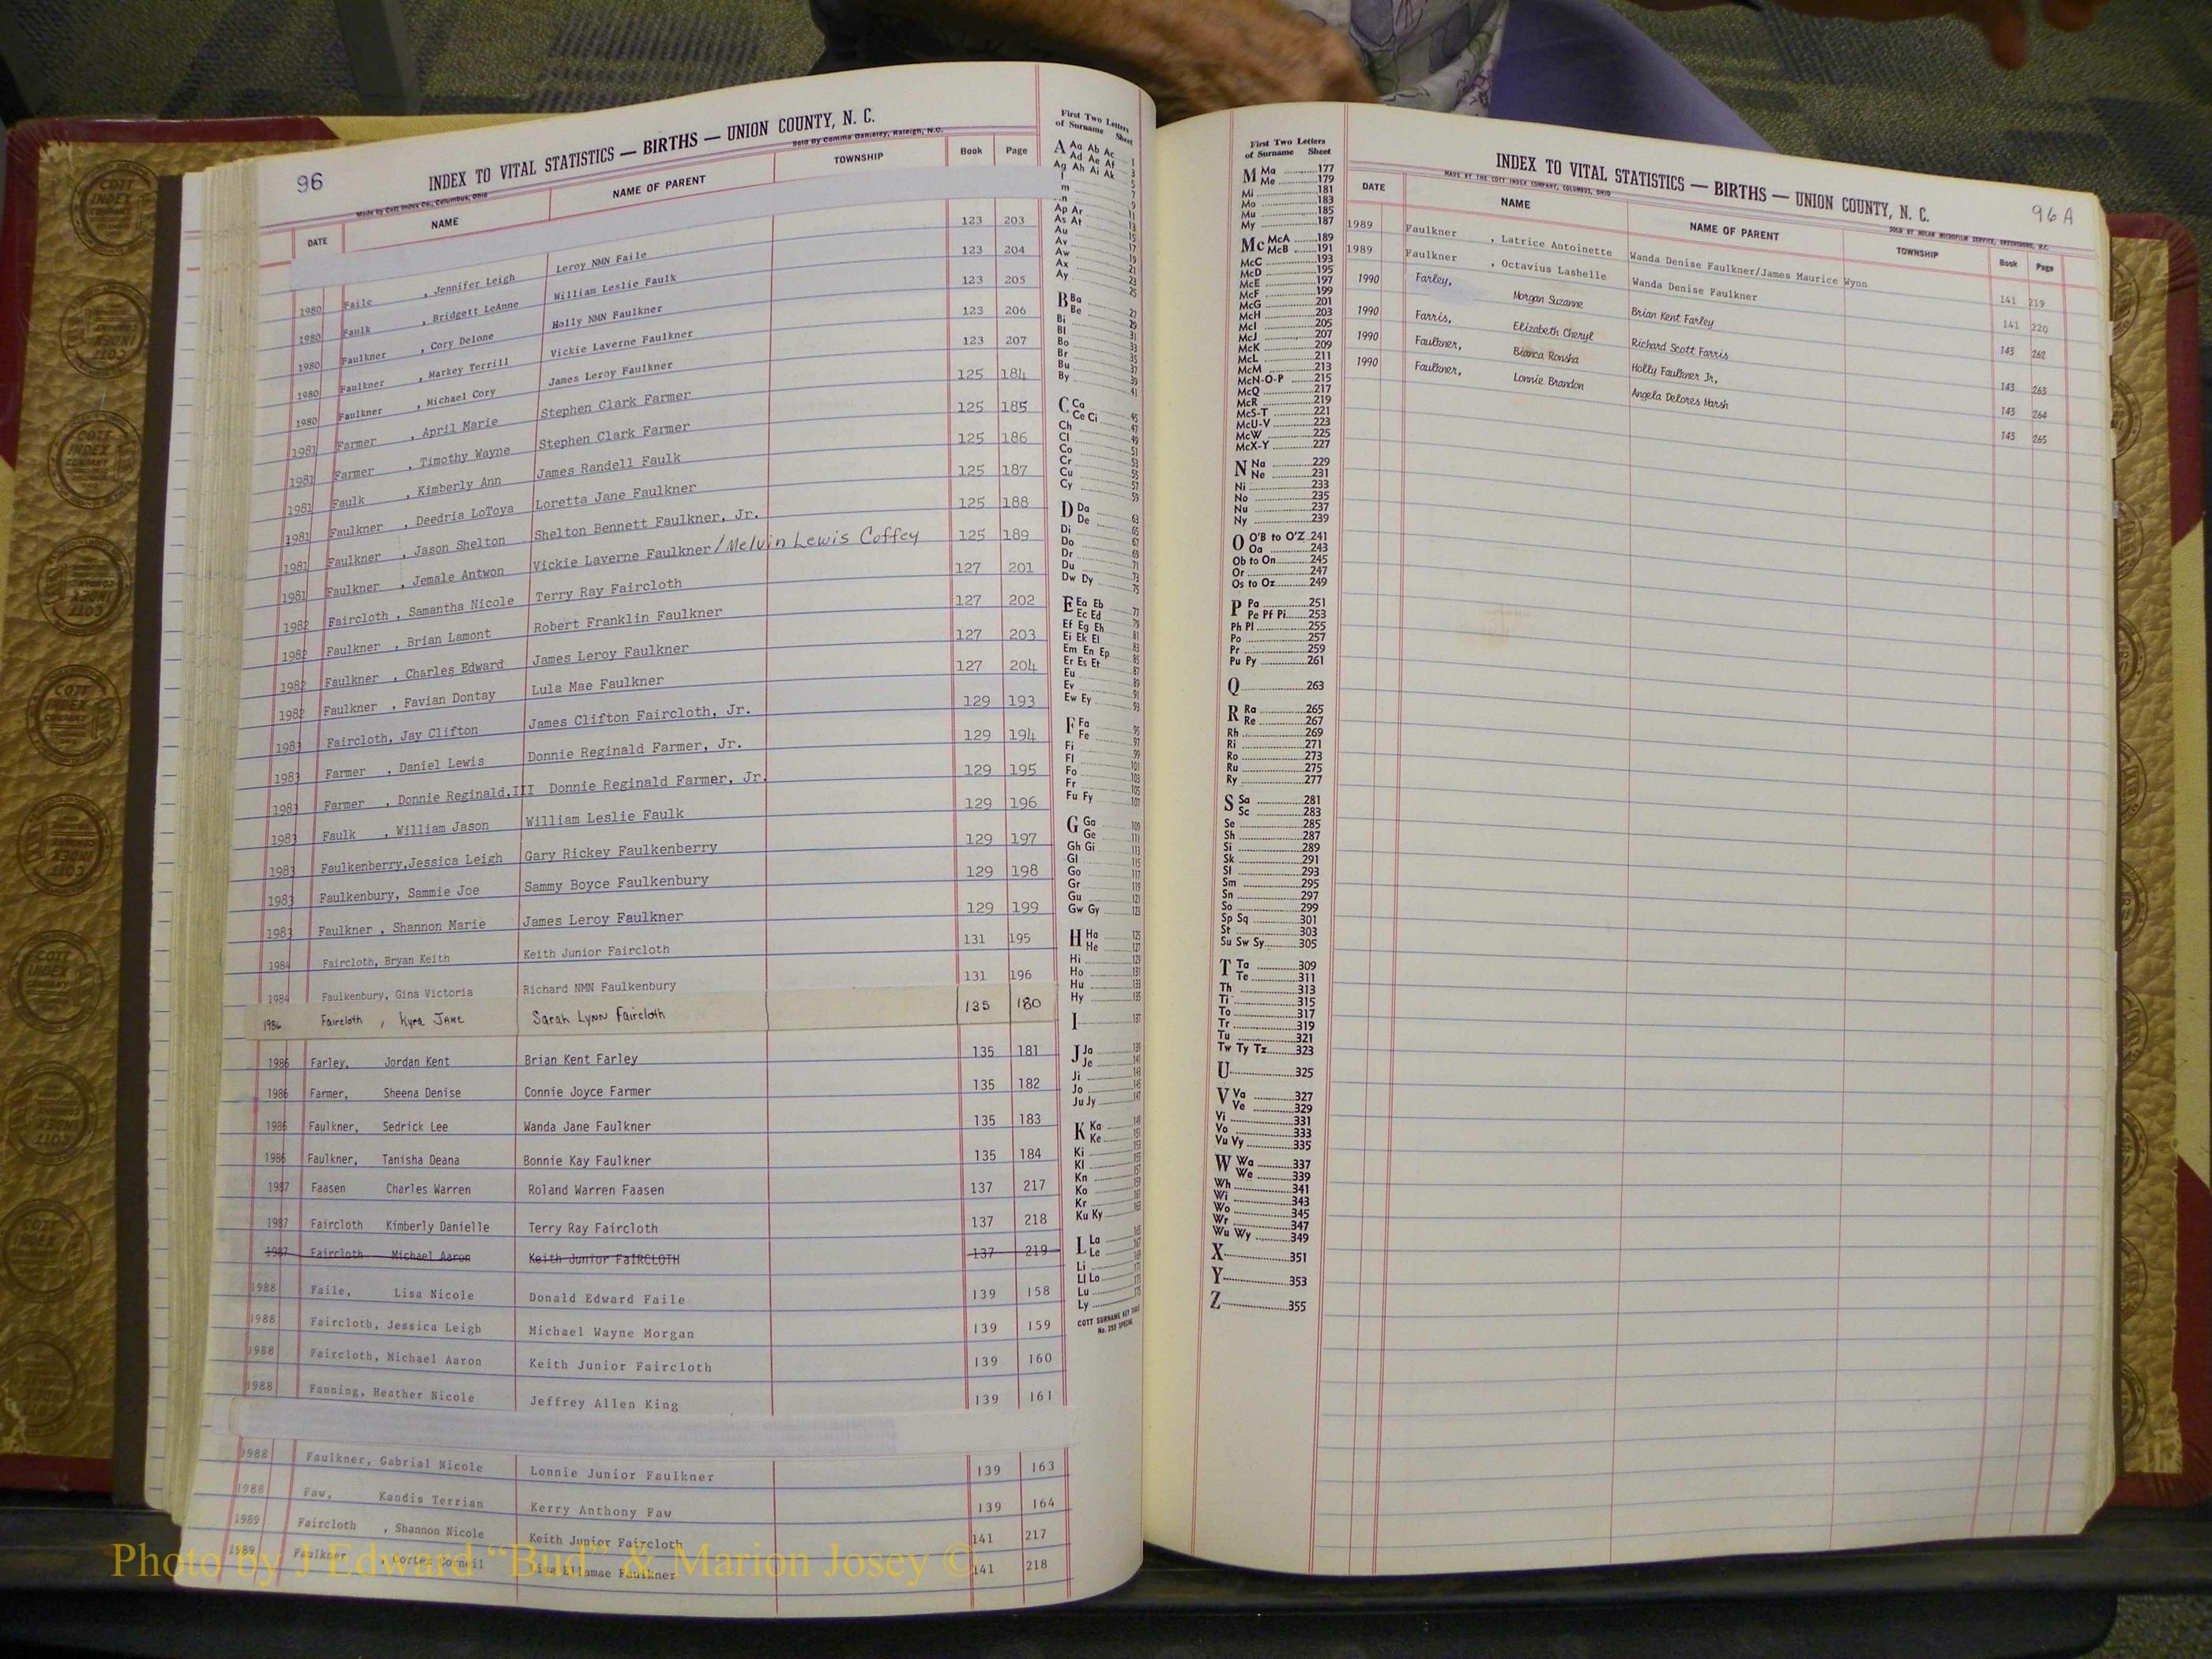 96
INDEX TO VITAL STATISTICS — BIRTHS — UNION COUNTY, N. C.
Made by Cott Index Co., Columbus, Ohio
DATE NAME NAME OF PARENT TOWNSHIP Book Page
1980 Faile , Jennifer Leigh Leroy NMN Faile 123 203
1980 Faulk , Bridgett LeAnne William Leslie Faulk 123 204
1980 Faulkner , Cory Delone Holly NMN Faulkner 123 205
1980 Faulkner , Markey Terrill Vickie Laverne Faulkner 123 206
1980 Faulkner , Michael Cory James Leroy Faulkner 123 207
1981 Farmer , April Marie Stephen Clark Farmer 125 184
1981 Farmer , Timothy Wayne Stephen Clark Farmer 125 185
1981 Faulk , Kimberly Ann James Randell Faulk 125 186
1981 Faulkner , Deedria LoToya Loretta Jane Faulkner 125 187
1981 Faulkner , Jason Shelton Shelton Bennett Faulkner, Jr. 125 188
1981 Faulkner , Jemale Antwon Vickie Laverne Faulkner/Melvin Lewis Coffey 125 189
1982 Faircloth , Samantha Nicole Terry Ray Faircloth 127 201
1982 Faulkner , Brian Lamont Robert Franklin Faulkner 127 202
1982 Faulkner , Charles Edward James Leroy Faulkner 127 203
1982 Faulkner , Favian Dontay Lula Mae Faulkner 127 204
1983 Faircloth, Jay Clifton James Clifton Faircloth, Jr. 129 193
1983 Farmer , Daniel Lewis Donnie Reginald Farmer, Jr. 129 194
1983 Farmer , Donnie Reginald,III Donnie Reginald Farmer, Jr. 129 195
1983 Faulk , William Jason William Leslie Faulk 129 196
1983 Faulkenberry,Jessica Leigh Gary Rickey Faulkenberry 129 197
1983 Faulkenbury, Sammie Joe Sammy Boyce Faulkenbury 129 198
1983 Faulkner , Shannon Marie James Leroy Faulkner 129 199
1984 Faircloth, Bryan Keith Keith Junior Faircloth 131 195
1984 Faulkenbury, Gina Victoria Richard NMN Faulkenbury 131 196
1986 Faircloth , Kyra Jane Sarah Lynn Faircloth 135 180
1986 Farley, Jordan Kent Brian Kent Farley 135 181
1986 Farmer, Sheena Denise Connie Joyce Farmer 135 182
1986 Faulkner, Sedrick Lee Wanda Jane Faulkner 135 183
1986 Faulkner, Tanisha Deana Bonnie Kay Faulkner 135 184
1987 Faasen Charles Warren Roland Warren Faasen 137 217
1987 Faircloth Kimberly Danielle Terry Ray Faircloth 137 218
1987 Faircloth Michael Aaron Keith Junior FaIRCLOTH 137 219
1988 Faile, Lisa Nicole Donald Edward Faile 139 158
1988 Faircloth, Jessica Leigh Michael Wayne Morgan 139 159
1988 Faircloth, Michael Aaron Keith Junior Faircloth 139 160
1988 Fanning, Heather Nicole Jeffrey Allen King 139 161
1988 Faulkner, Gabrial Nicole Lonnie Junior Faulkner 139 163
1988 Faw, Kandis Terrian Kerry Anthony Faw 139 164
1989 Faircloth , Shannon Nicole Keith Junior Faircloth 141 217
1989 Faulkner , Cortez Corneil Faulkner 141 218
First Two Letters
of Surname Sheet
A Aa Ab Ac 1
Ad Ae Af 3
Ag Ah Ai Ak 5
Ap Ar
As At
Au
Av
Aw
Ax
Ay
B Ba 27
Be 29
Bi 31
Bl 33
Bo 35
Br 37
Bu 39
By 41
C Ca 45
Ce Ci 47
Ch 49
Cl 51
Co 53
Cr 55
Cu 57
Cy 59
D Da 63
De 65
Di 67
Do 69
Dr 71
Du 73
Dw Dy 75
E Ea Eb 77
Ec Ed 79
Ef Eg Eh 81
Ei Ek El 83
Em En Ep 85
Er Es Et 87
Eu 89
Ev 91
Ew Ey 93
F Fa 95
Fe 97
Fi 99
Fl 101
Fo 103
Fr 105
Fu Fy 107
G Ga 109
Ge 111
Gh Gi 113
Gl 115
Go 117
Gr 119
Gu 121
Gw Gy 123
H Ha 125
He 127
Hi 129
Ho 131
Hu 133
Hy 135
I 137
J Ja 139
Je 141
Ji 143
Jo 145
Ju Jy 147
K Ka 149
Ke 151
Ki 153
Kl 155
Kn 157
Ko 159
Kr 161
Ku Ky 163
L La 165
Le 167
Li 169
Ll Lo 171
Lu 173
Ly 175
COTT SURNAME KEY TABLE
No. 355 SPECIAL
First Two Letters
of Surname Sheet
M Ma 177
Me 179
Mi 181
Mo 183
Mu 185
My 187
Mc McA 189
McB 191
McC 193
McD 195
McE 197
McF 199
McG 201
McH 203
McI 205
McJ 207
McK 209
McL 211
McM 213
McN-O-P 215
McQ 217
McR 219
McS-T 221
McU-V 223
McW 225
McX-Y 227
N Na 229
Ne 231
Ni 233
No 235
Nu 237
Ny 239
O O'B to O'Z 241
Oa 243
Ob to On 245
Or 247
Os to Oz 249
P Pa 251
Pe Pf Pi 253
Ph Pl 255
Po 257
Pr 259
Pu Py 261
Q 263
R Ra 265
Re 267
Rh 269
Ri 271
Ro 273
Ru 275
Ry 277
S Sa 281
Sc 283
Se 285
Sh 287
Si 289
Sk 291
Sl 293
Sm 295
Sn 297
So 299
Sp Sq 301
St 303
Su Sw Sy 305
T Ta 309
Te 311
Th 313
Ti 315
To 317
Tr 319
Tu 321
Tw Ty Tz 323
U 325
V Va 327
Ve 329
Vi 331
Vo 333
Vu Vy 335
W Wa 337
We 339
Wh 341
Wi 343
Wo 345
Wr 347
Wu Wy 349
X 351
Y 353
Z 355
INDEX TO VITAL STATISTICS — BIRTHS — UNION COUNTY, N. C.
96 A
MADE BY THE COTT INDEX COMPANY, COLUMBUS, OHIO
DATE NAME NAME OF PARENT TOWNSHIP Book Page
1989 Faulkner , Latrice Antoinette Wanda Denise Faulkner/James Maurice Wynn 141 219
1989 Faulkner , Octavius Lashelle Wanda Denise Faulkner 141 220
1990 Farley, Morgan Suzanne Brian Kent Farley 143 262
1990 Farris, Elizabeth Cheryl Richard Scott Farris 143 263
1990 Faulkner, Bianca Ronsha Holly Faulkner Jr, 143 264
1990 Faulkner, Lonnie Brandon Angela Delores Marsh 143 265
Photo by J Edward “Bud” & Marion Josey ©